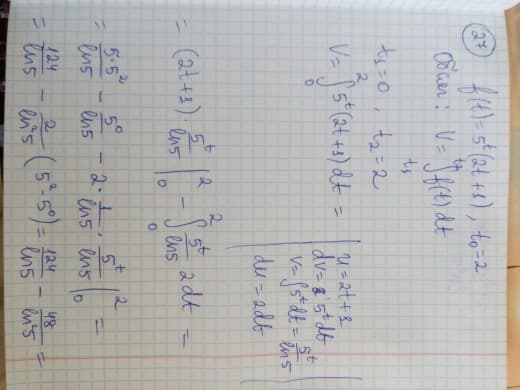 27
f(t) = 5^t (2t+1), t_0 = 2
Объем: V = ∫_{t_1}^{t_2} f(t) dt
t_1 = 0, t_2 = 2
V = ∫_0^2 5^t (2t+1) dt =
u = 2t+1
dv = 5^t dt
v = ∫ 5^t dt = 5^t / ln5
du = 2dt
= (2t+1) · 5^t / ln5 |_0^2 − ∫_0^2 5^t / ln5 2 dt =
= 5·5^2 / ln5 − 5^0 / ln5 − 2 · 1 / ln5 · 5^t / ln5 |_0^2 =
= 124 / ln5 − 2 / ln^2 5 (5^2 - 5^0) = 124 / ln5 − 48 / ln^2 5 =